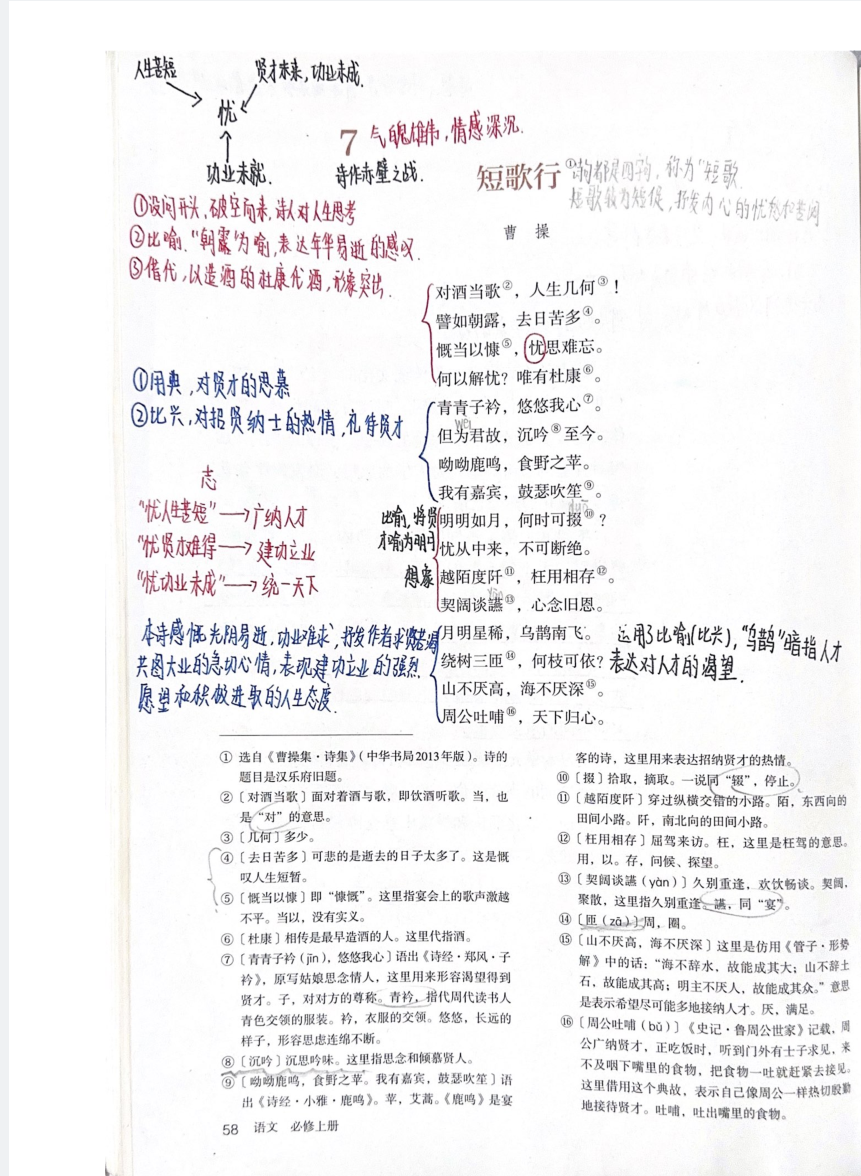 人生苦短
贤才未来,功业未成.
忧
功业未就.
7
气魄雄伟,情感深沉.
诗作赤壁之战.
短歌行①
句都是四句,称为“短歌
短歌较为短促,抒发内心的忧愁和苦闷
曹 操
①设问开头,破空而来,诗人对人生思考
②比喻.“朝露”为喻,表达年华易逝的感叹.
③借代,以造酒的杜康代酒,形象突出.
对酒当歌②，人生几何③！
譬如朝露，去日苦多④。
慨当以慷⑤，忧思难忘。
何以解忧？唯有杜康⑥。
①用典,对贤才的思慕
②比兴,对招贤纳士的热情,礼待贤才
青青子衿，悠悠我心⑦。
wèi
但为君故，沉吟⑧至今。
呦呦鹿鸣，食野之苹。
我有嘉宾，鼓瑟吹笙⑨。
志
“忧人生苦短”→广纳人才
“忧贤才难得→建功立业
“忧功业未成”→统一天下
比喻,将贤
才喻为明月
想象
duō
明明如月，何时可掇⑩？
忧从中来，不可断绝。
越陌度阡⑪，枉用相存⑫。
yàn
契阔谈䜩⑬，心念旧恩。
本诗感慨光阴易逝,功业难求,抒发作者求贤若渴
共图大业的急切心情,表现建功立业的强烈
愿望和积极进取的人生态度.
月明星稀，乌鹊南飞。
绕树三匝⑭，何枝可依？
山不厌高，海不厌深⑮。
周公吐哺⑯，天下归心。
运用了比喻(比兴),“乌鹊”暗指人才
表达对人才的渴望.
① 选自《曹操集·诗集》（中华书局2013年版）。诗的
题目是汉乐府旧题。
②〔对酒当歌〕面对着酒与歌，即饮酒听歌。当，也
是“对”的意思。
③〔几何〕多少。
④〔去日苦多〕可悲的是逝去的日子太多了。这是慨
叹人生短暂。
⑤〔慨当以慷〕即“慷慨”。这里指宴会上的歌声激越
不平。当以，没有实义。
⑥〔杜康〕相传是最早造酒的人。这里代指酒。
⑦〔青青子衿（jīn），悠悠我心〕语出《诗经·郑风·子
衿》，原写姑娘思念情人，这里用来形容渴望得到
贤才。子，对对方的尊称。青衿，指代周代读书人
青色交领的服装。衿，衣服的交领。悠悠，长远的
样子，形容思虑连绵不断。
⑧〔沉吟〕沉思吟味。这里指思念和倾慕贤人。
⑨〔呦呦鹿鸣，食野之苹。我有嘉宾，鼓瑟吹笙〕语
出《诗经·小雅·鹿鸣》。苹，艾蒿。《鹿鸣》是宴
客的诗，这里用来表达招纳贤才的热情。
⑩〔掇〕拾取，摘取。一说同“辍”，停止。
⑪〔越陌度阡〕穿过纵横交错的小路。陌，东西向的
田间小路。阡，南北向的田间小路。
⑫〔枉用相存〕屈驾来访。枉，这里是枉驾的意思。
用，以。存，问候、探望。
⑬〔契阔谈䜩（yàn）〕久别重逢，欢饮畅谈。契阔，
聚散，这里指久别重逢。䜩，同“宴”。
⑭〔匝（zā）〕周，圈。
⑮〔山不厌高，海不厌深〕这里是仿用《管子·形势
解》中的话：“海不辞水，故能成其大；山不辞土
石，故能成其高；明主不厌人，故能成其众。”意思
是表示希望尽可能多地接纳人才。厌，满足。
⑯〔周公吐哺（bǔ）〕《史记·鲁周公世家》记载，周
公广纳贤才，正吃饭时，听到门外有士子求见，来
不及咽下嘴里的食物，把食物一吐就赶紧去接见。
这里借用这个典故，表示自己像周公一样热切殷勤
地接待贤才。吐哺，吐出嘴里的食物。
58 语文 必修上册